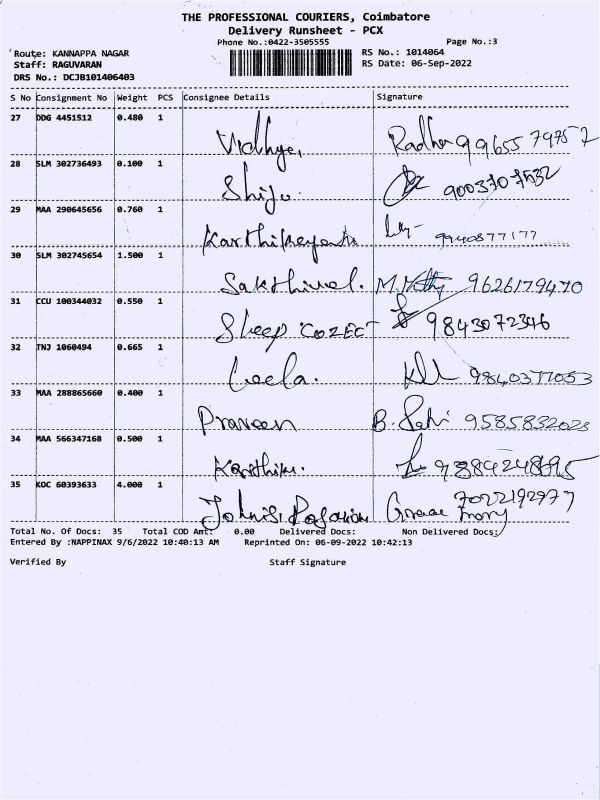 THE PROFESSIONAL COURIERS, Coimbatore
Delivery Runsheet - PCX
Phone No.:0422-3505555 Page No.:3
Route: KANNAPPA NAGAR RS No.: 1014064
Staff: RAGUVARAN RS Date: 06-Sep-2022
DRS No.: DCJB101406403
S No Consignment No Weight PCS Consignee Details Signature
27 DDG 4451512 0.480 1 Vidhya, Radha 9965579757
28 SLM 302736493 0.100 1 Shiju 9003707532
29 MAA 290645656 0.760 1 Karthikeyan 9940877177
30 SLM 302745654 1.500 1 Sakthivel. 9626179470
31 CCU 100344032 0.550 1 Sleep COZEE 9843072346
32 TNJ 1060494 0.665 1 Leela. 9840377053
33 MAA 288865660 0.400 1 Praveen B. 9585832023
34 MAA 566347168 0.500 1 Karthik.
35 KOC 60393633 4.000 1 Grace Mary 7022192977
Total No. Of Docs: 35 Total COD Amt: 0.00 Delivered Docs: Non Delivered Docs:
Entered By :NAPPINAX 9/6/2022 10:40:13 AM Reprinted On: 06-09-2022 10:42:13
Verified By Staff Signature